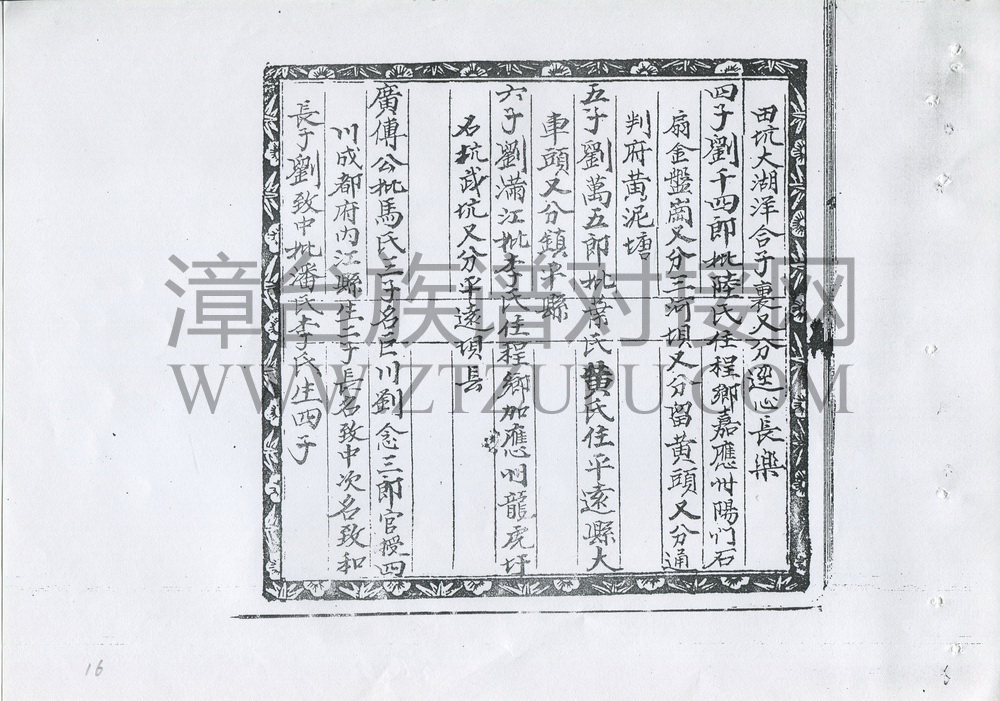 田坑大湖洋合子裏又分逕心長樂
四子劉千四郎批陸氏住程鄉嘉應州陽門石
扇金盤崗又分三河垻又分留黃頭又分通
判府黃泥塘
五子劉萬五郎批葉氏黃氏住平遠縣大
車頭又分鎮平縣
六子劉滿江批李氏住程鄉加應州龍虎圩
名坑武坑又分平遠垻長
廣傅公批馬氏三子名巨川劉念三郎官授四
川成都府內江縣生二子長名致中次名致和
長子劉致中批潘氏李氏生四子
漳台族谱对接网
WWW.ZTZUPU.COM
16